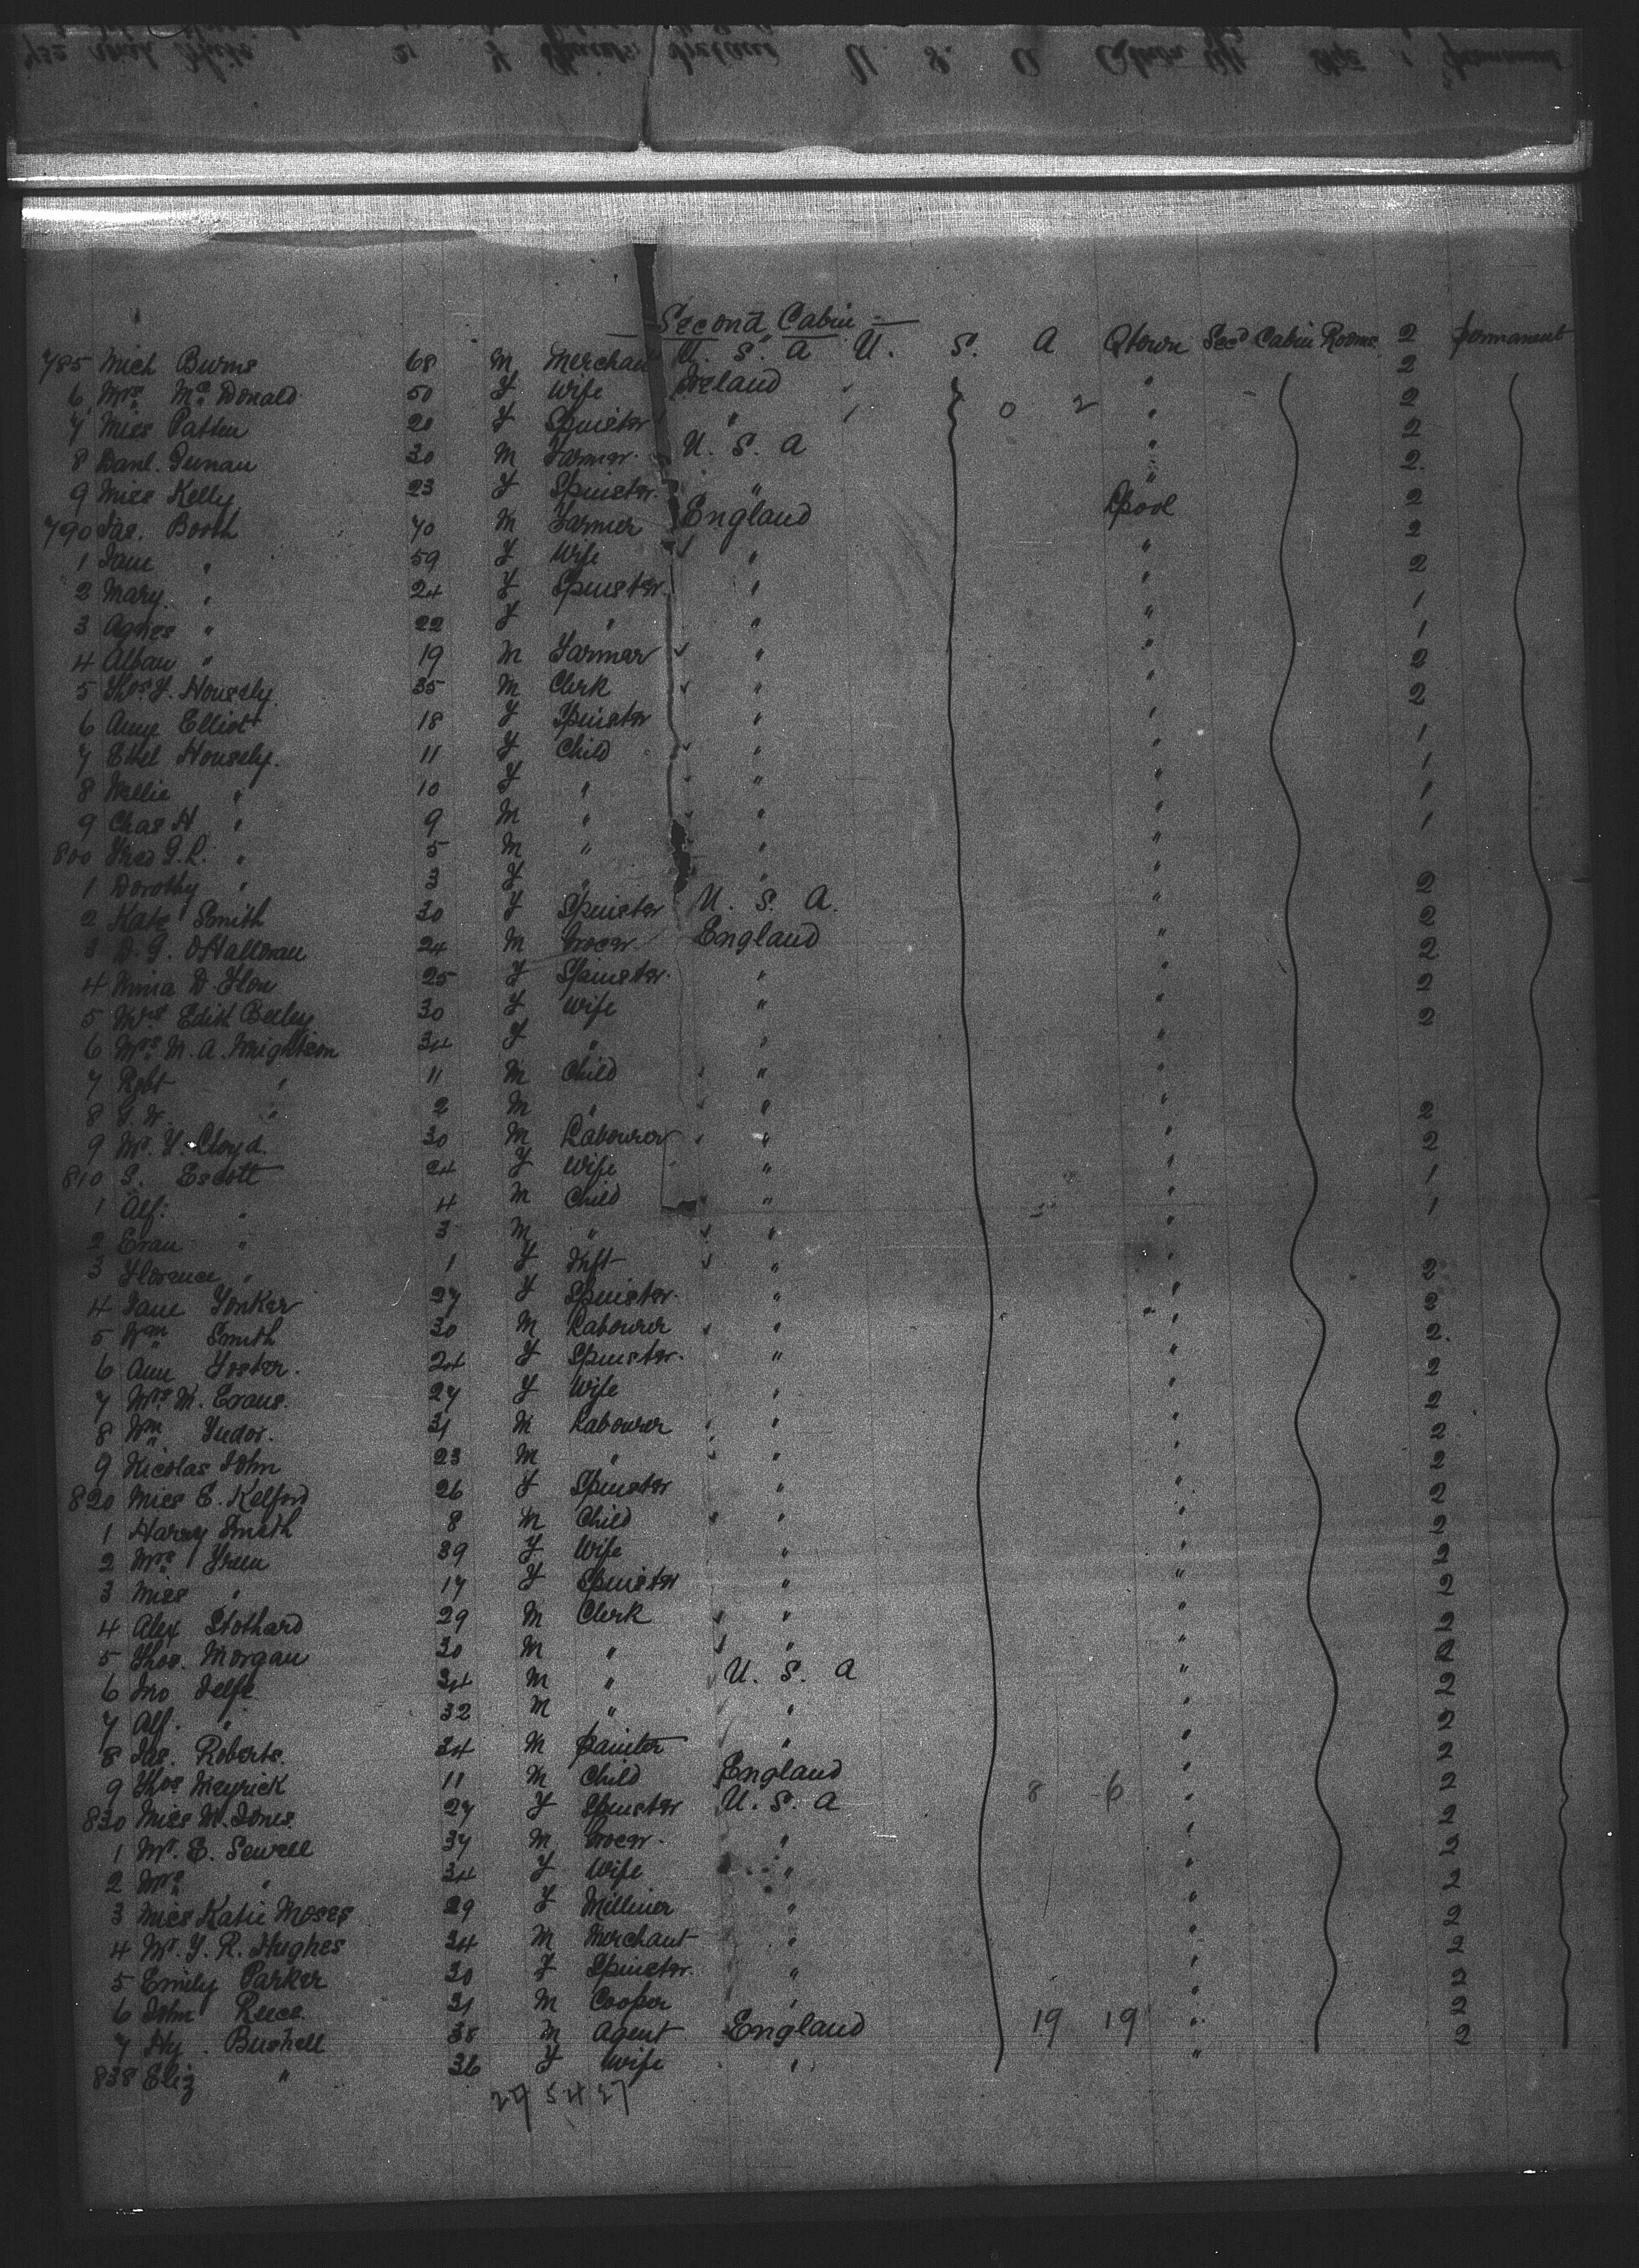 Second Cabin
785 Mich Burns 68 M Merchant U. S. A U. S. A Qtown Secd Cabin Rooms 2 permanent
6 Mrs McDonald 50 F Wife Ireland " 2
7 Miss Patten 20 F Spinster " 0 2 " 2
8 Danl. 30 M Farmer U. S. A " 2
9 Miss Kelly 23 F Spinster " " 2
790 Jas. Booth 70 M Farmer England Lpool 2
1 Jane " 59 F Wife " " 2
2 Mary " 24 F Spinster " " 2
3 Agnes " 22 F " " " 1
4 Alban " 19 M Farmer " " 1
5 Thos F. Housely 35 M Clerk " " 2
6 Anne Elliot 18 F Spinster " " 2
7 Ethel Housely. 11 F Child " " 1
8 Nellie " 10 F " " " 1
9 Chas H " 9 M " " " 1
800 Fred G.L. " 5 M " " " 1
1 Dorothy " 3 F " " "
2 Kate Smith 30 F Spinster U. S. A. " 2
3 D. G. OHalloran 24 M Grocer England " 2
4 Minia D. 25 F Spinster " " 2
5 Mrs Edith 30 F Wife " " 2
6 Mrs M. A. Wrightson 34 F " " " 2
7 Robt " 11 M Child " "
8 G. W. " 2 M " " "
9 Mr. F. Lloyd. 30 M Labourer " " 2
810 S. Escott 24 F Wife " " 2
1 Alf: " 4 M Child " " 1
2 Evan " 3 M " " " 1
3 Florence " 1 F Inft " "
4 Jane Yonker 27 F Spinster " " 2
5 Wm Smith 30 M Labourer " " 2
6 Ann Foster. 24 F Spinster " " 2.
7 Mrs M. Evans. 27 F Wife " " 2
8 Wm Tudor. 31 M Labourer " " 2
9 Nicolas John 23 M " " " 2
820 Miss E. Kelford 26 F Spinster " " 2
1 Harry Smith 8 M Child " " 2
2 Mrs Green 39 F Wife " " 2
3 Miss " 17 F Spinster " " 2
4 Alex Stothard 29 M Clerk " " 2
5 Thos. Morgan 30 M " " " 2
6 Jno 34 M " U. S. A " 2
7 Alf. " 32 M " " " 2
8 Jas. Roberts 34 M painter " " 2
9 Thos Meyrick 11 M Child England " 2
830 Miss M. Jones. 27 F Spinster U. S. A 8 6 " 2
1 Mr. E. Sewell 37 M Grocer " " 2
2 Mrs " 34 F Wife " " 2
3 Miss Katie Moses 29 F Milliner " " 2
4 Mr. F. R. Hughes 34 M Merchant " " 2
5 Emily Parker 30 F Spinster " " 2
6 John Reece. 31 M Cooper " " 2
7 Hy. Bushell 38 M Agent England 19 19 " 2
838 Eliz " 36 F Wife " " 2
29 54 27